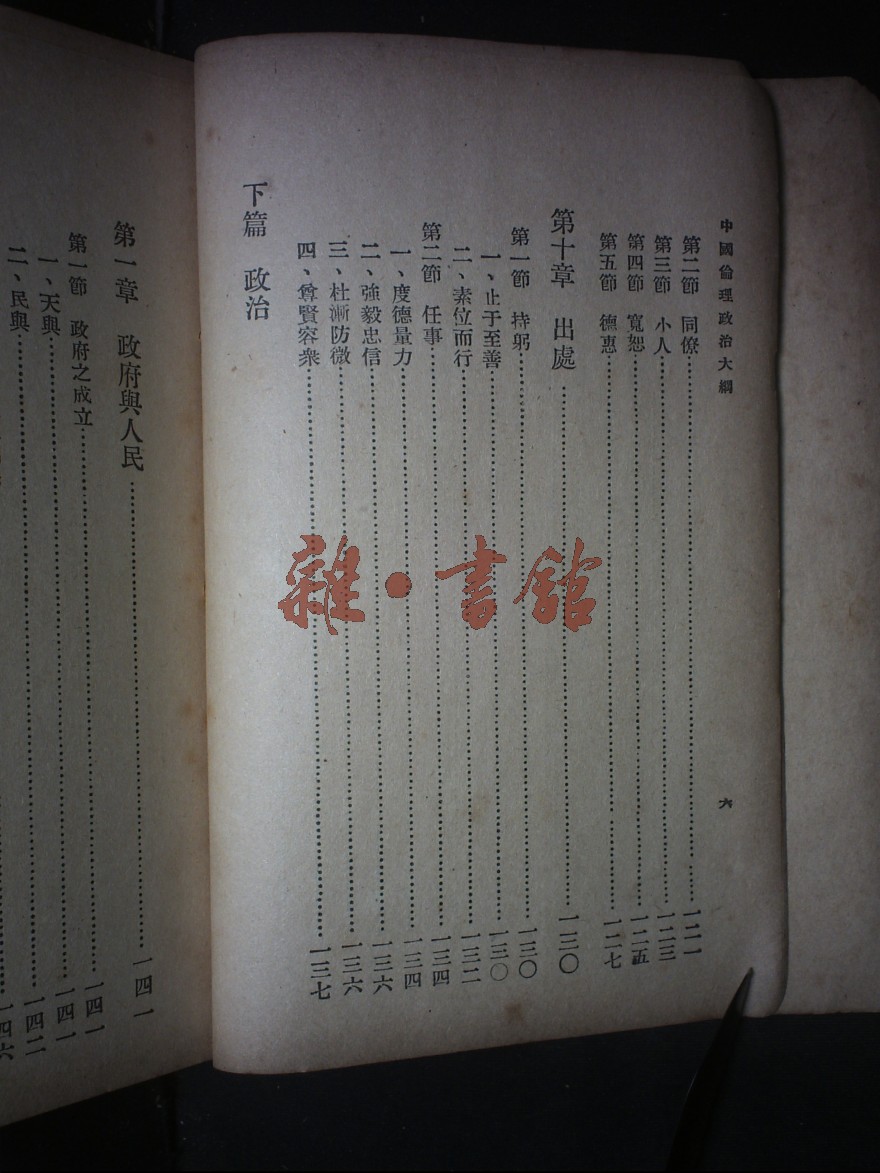 中國倫理政治大綱
六
第二節 同僚……一二一
第三節 小人……一二三
第四節 寬恕……一二五
第五節 德惠……一二七
第十章 出處……一三〇
第一節 持躬……一三〇
一、止于至善……一三〇
二、素位而行……一三二
第二節 任事……一三四
一、度德量力……一三四
二、強毅忠信……一三六
三、杜漸防微……一三六
四、尊賢容衆……一三七
下篇 政治
第一章 政府與人民……一四一
第一節 政府之成立……一四一
一、天與……一四一
二、民與……一四二
一四六
雜·書館